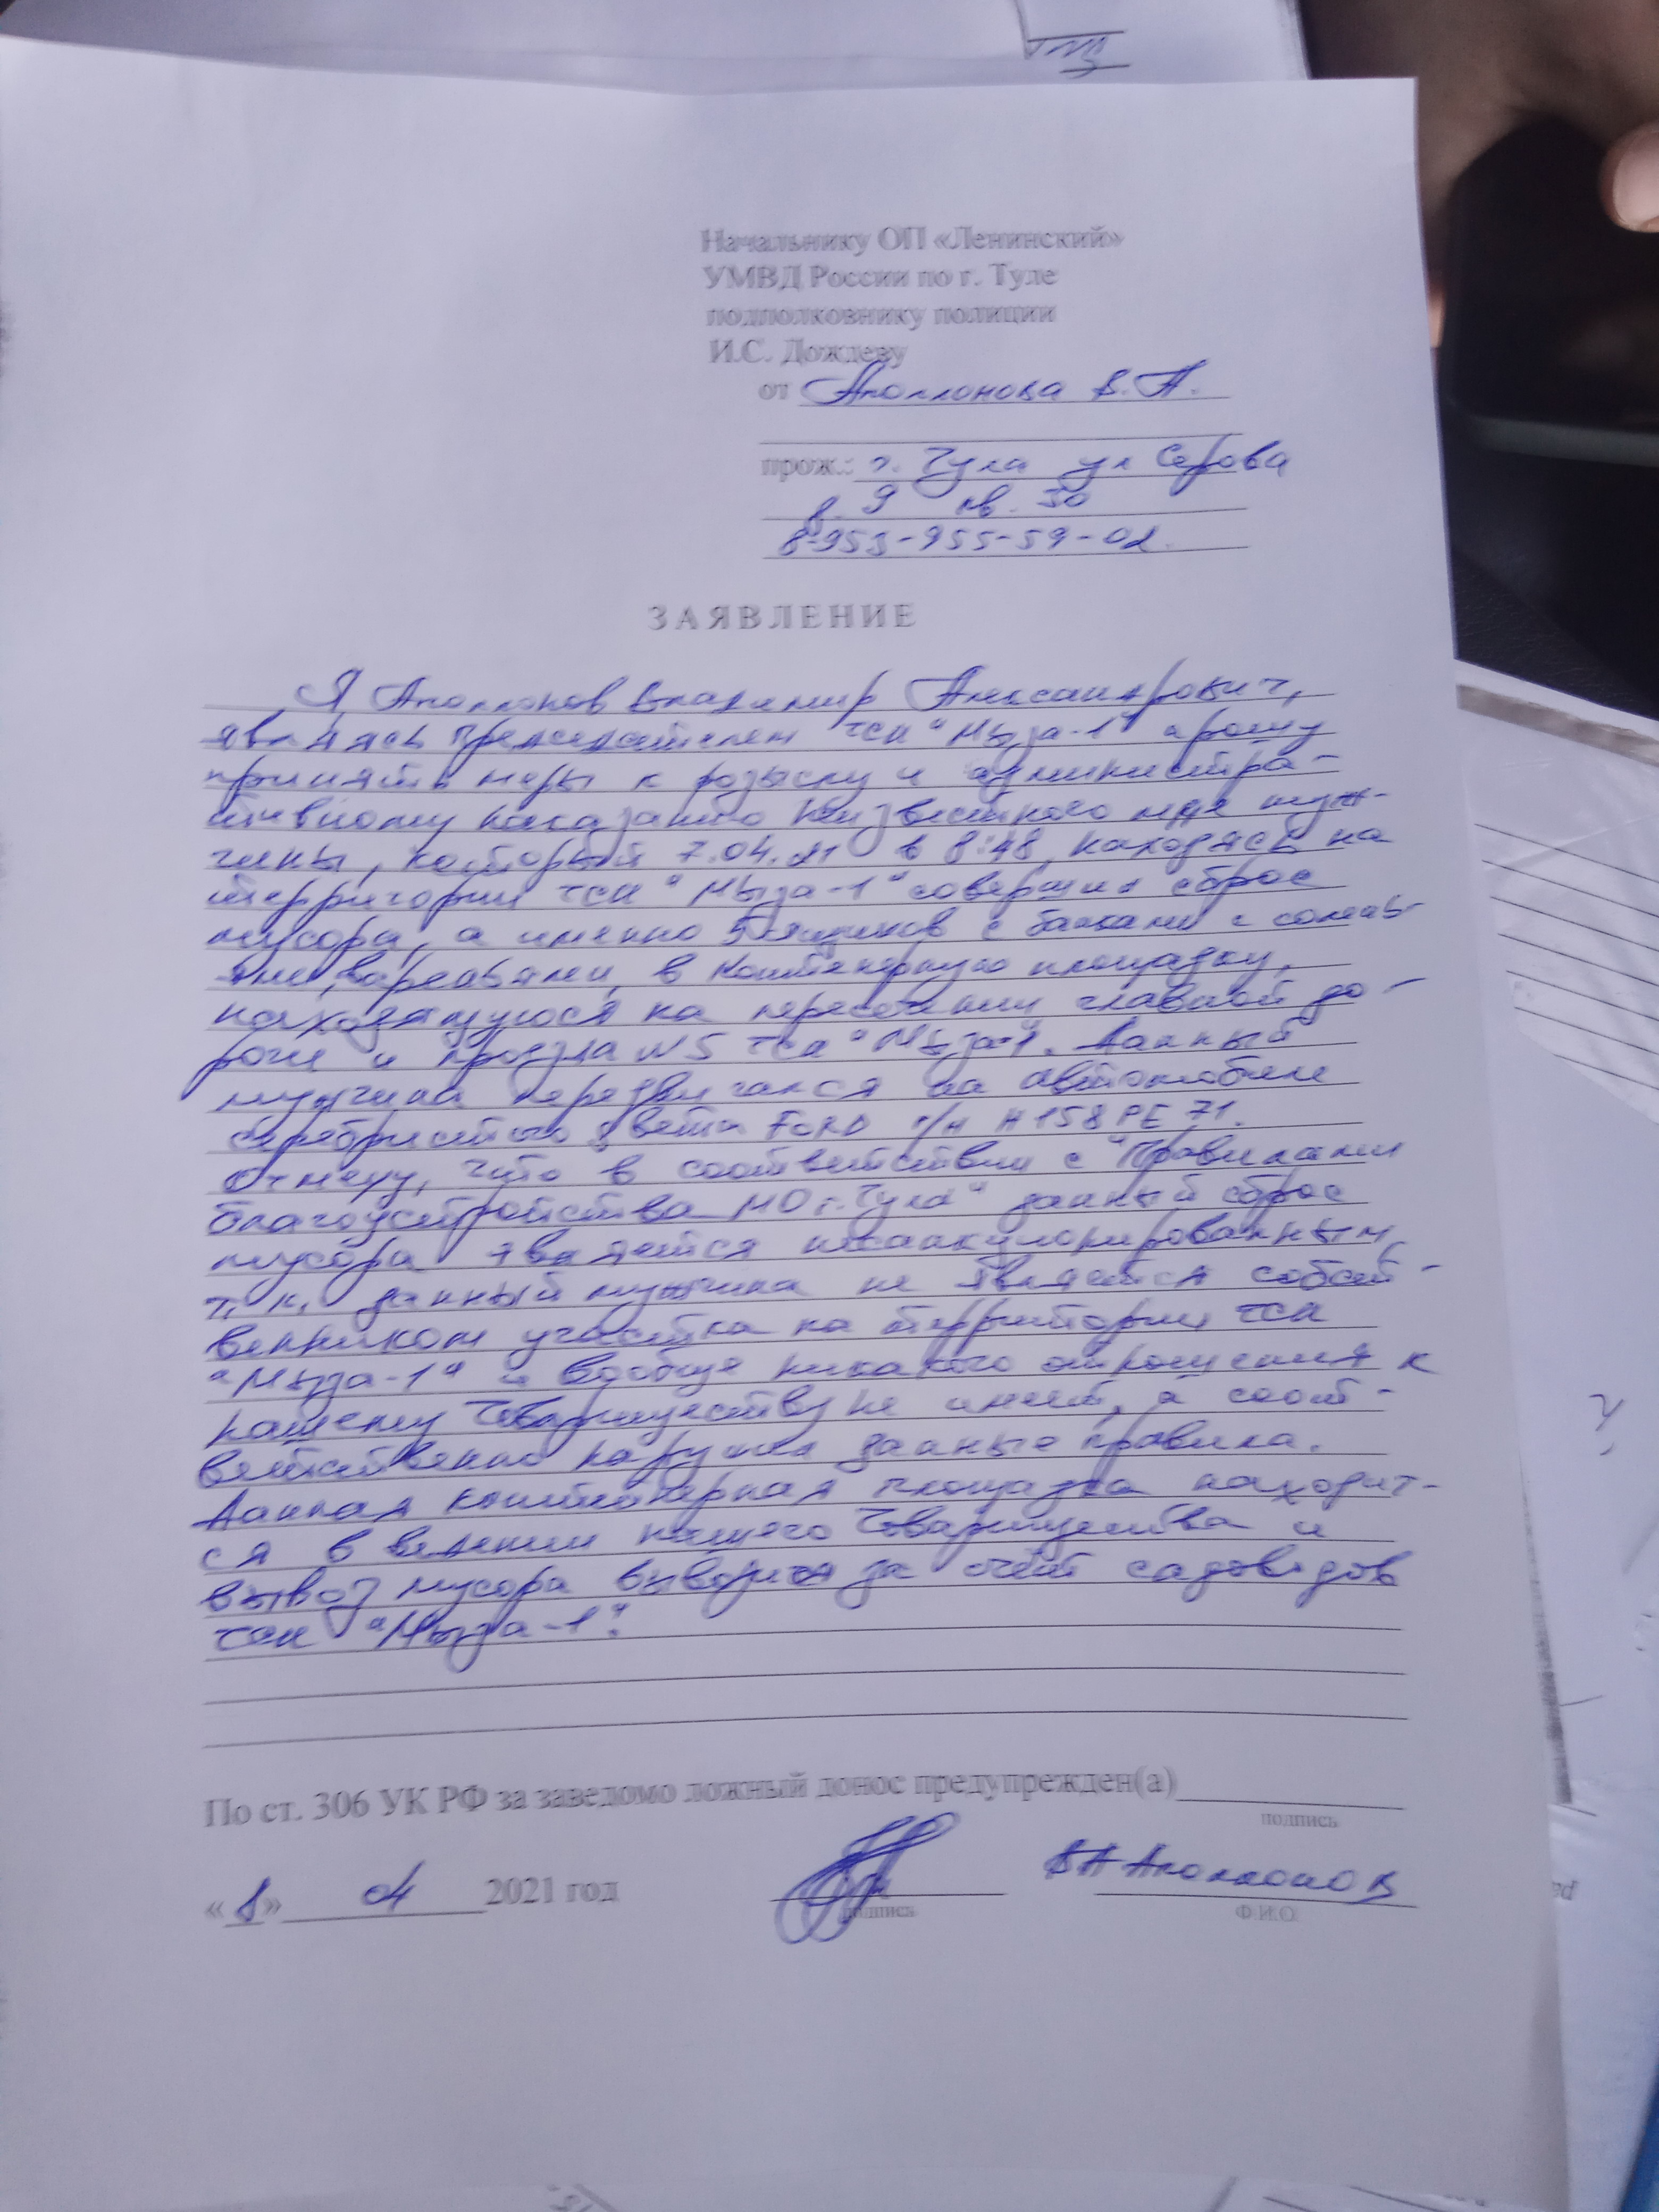 Начальнику ОП «Ленинский»
УМВД России по г. Туле
подполковнику полиции
И.С. Дождеву
от Аполлонова В.А.
прож.: г. Тула ул Серова
д. 9 кв. 30
8-953-955-59-02.
ЗАЯВЛЕНИЕ
Я, Аполлонов Владимир Александрович,
являясь председателем ТСН "Мыза-1" прошу
принять меры к розыску и администра-
тивному наказанию неизвестного мне муж-
чины, который 7.04.21 в 8:48, находясь на
территории ТСН "Мыза-1" совершил сброс
мусора, а именно 5 ящиков с банками с солень-
ями, вареньями, в контенерную площадку,
находящуюся на пересечении главной до-
роги и проезда №5 ТСН "Мыза-1". Данный
мужчина передвигался на автомобиле
серебристого цвета FORD г/н Н158РЕ 71.
Отмечу, что в соответствии с "Правилами
благоустройства МО г. Тула" данный сброс
мусора является
т.к. данный мужчина не является собст-
венником участка на территории ТСН
"Мыза-1" и вообще никакого отношения к
нашему Товариществу не имеет, а соот-
ветственно нарушил данные правила.
Данная контейнерная площадка находит-
ся в ведении нашего Товарищества и
вывоз мусора за счёт садоводов
ТСН "Мыза-1".
По ст. 306 УК РФ за заведомо ложный донос предупрежден(а)
подпись
«8» 04 2021 год
В А Аполлонов
подпись
Ф.И.О.